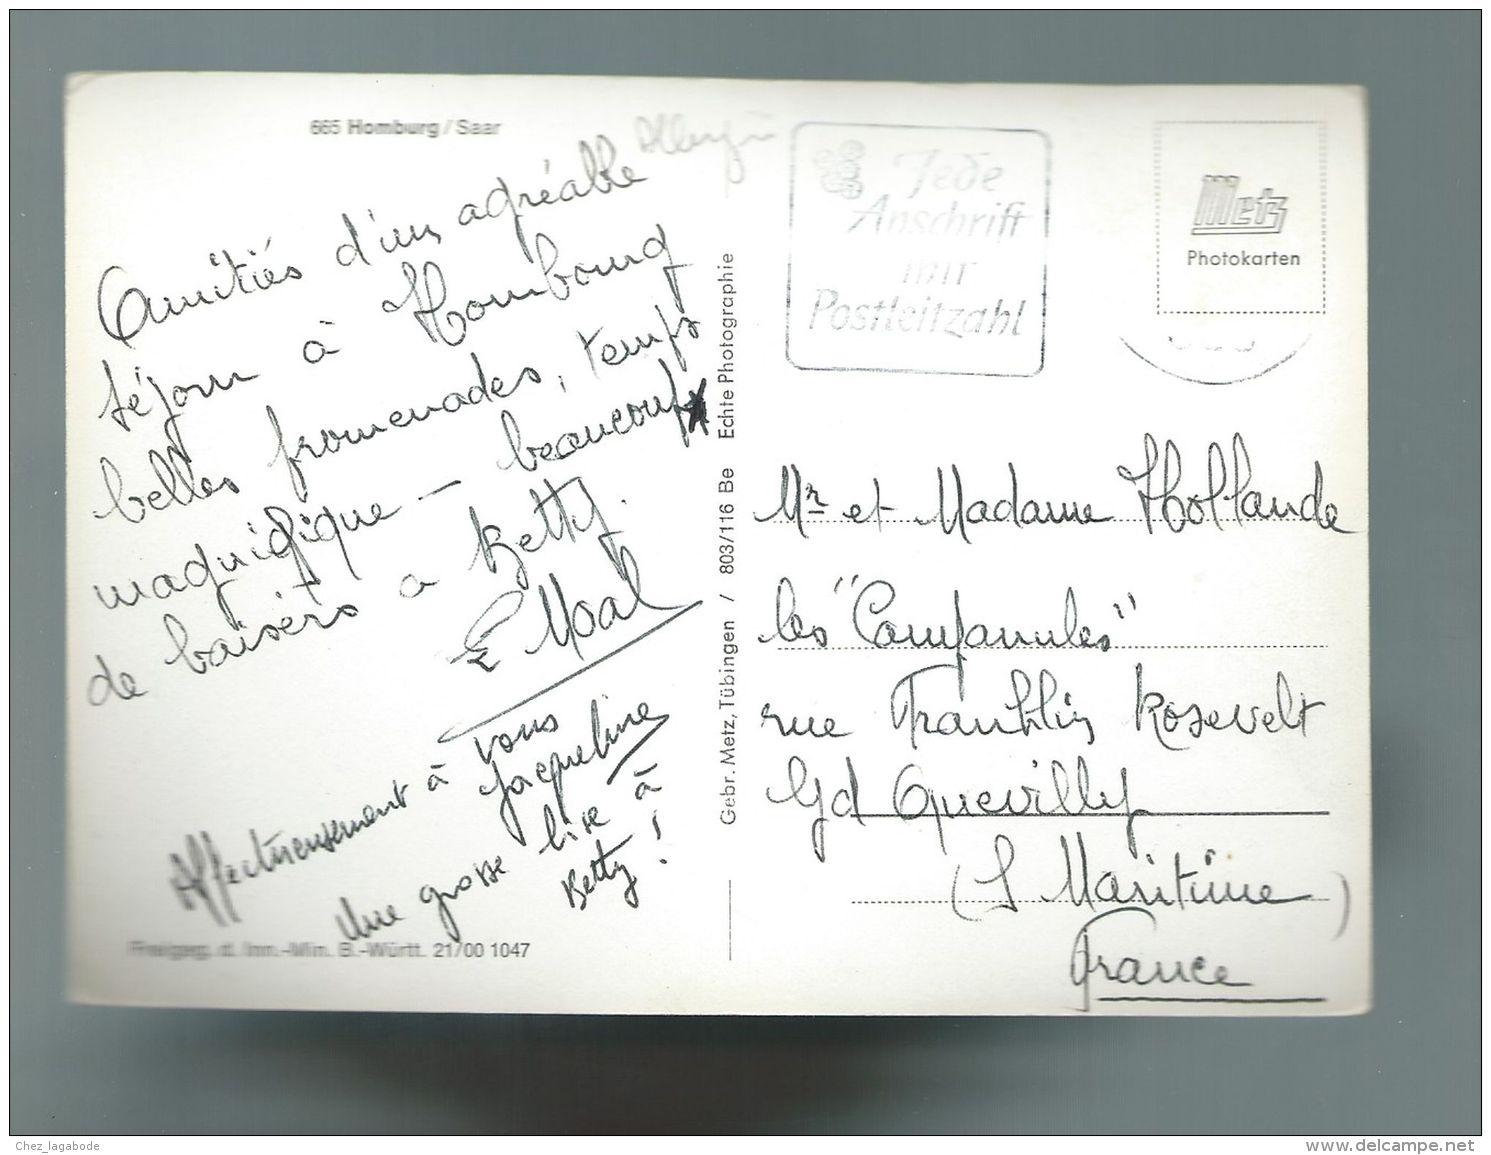 665 Homburg/Saar
Amitiés d'un agréable
séjour à Hombourg
belles promenades, temps
magnifique - beaucoup
de baisers a Betty.
Moal
Affectueusement à vous
Jacqueline
Une grosse bise à
Betty!
Freigeg. d. Inn.-Min. B.-Württ. 21/00 1047
Gebr. Metz, Tübingen / 803/116 Be Echte Photographie
Jede
Anschrift
mit
Postleitzahl
Metz
Photokarten
Mr et Madame Hollande
les "Campanules"
rue Franklin Rosevelt
Gd Quevilly
(S Maritime)
France
Chez_lagabode
www.delcampe.net